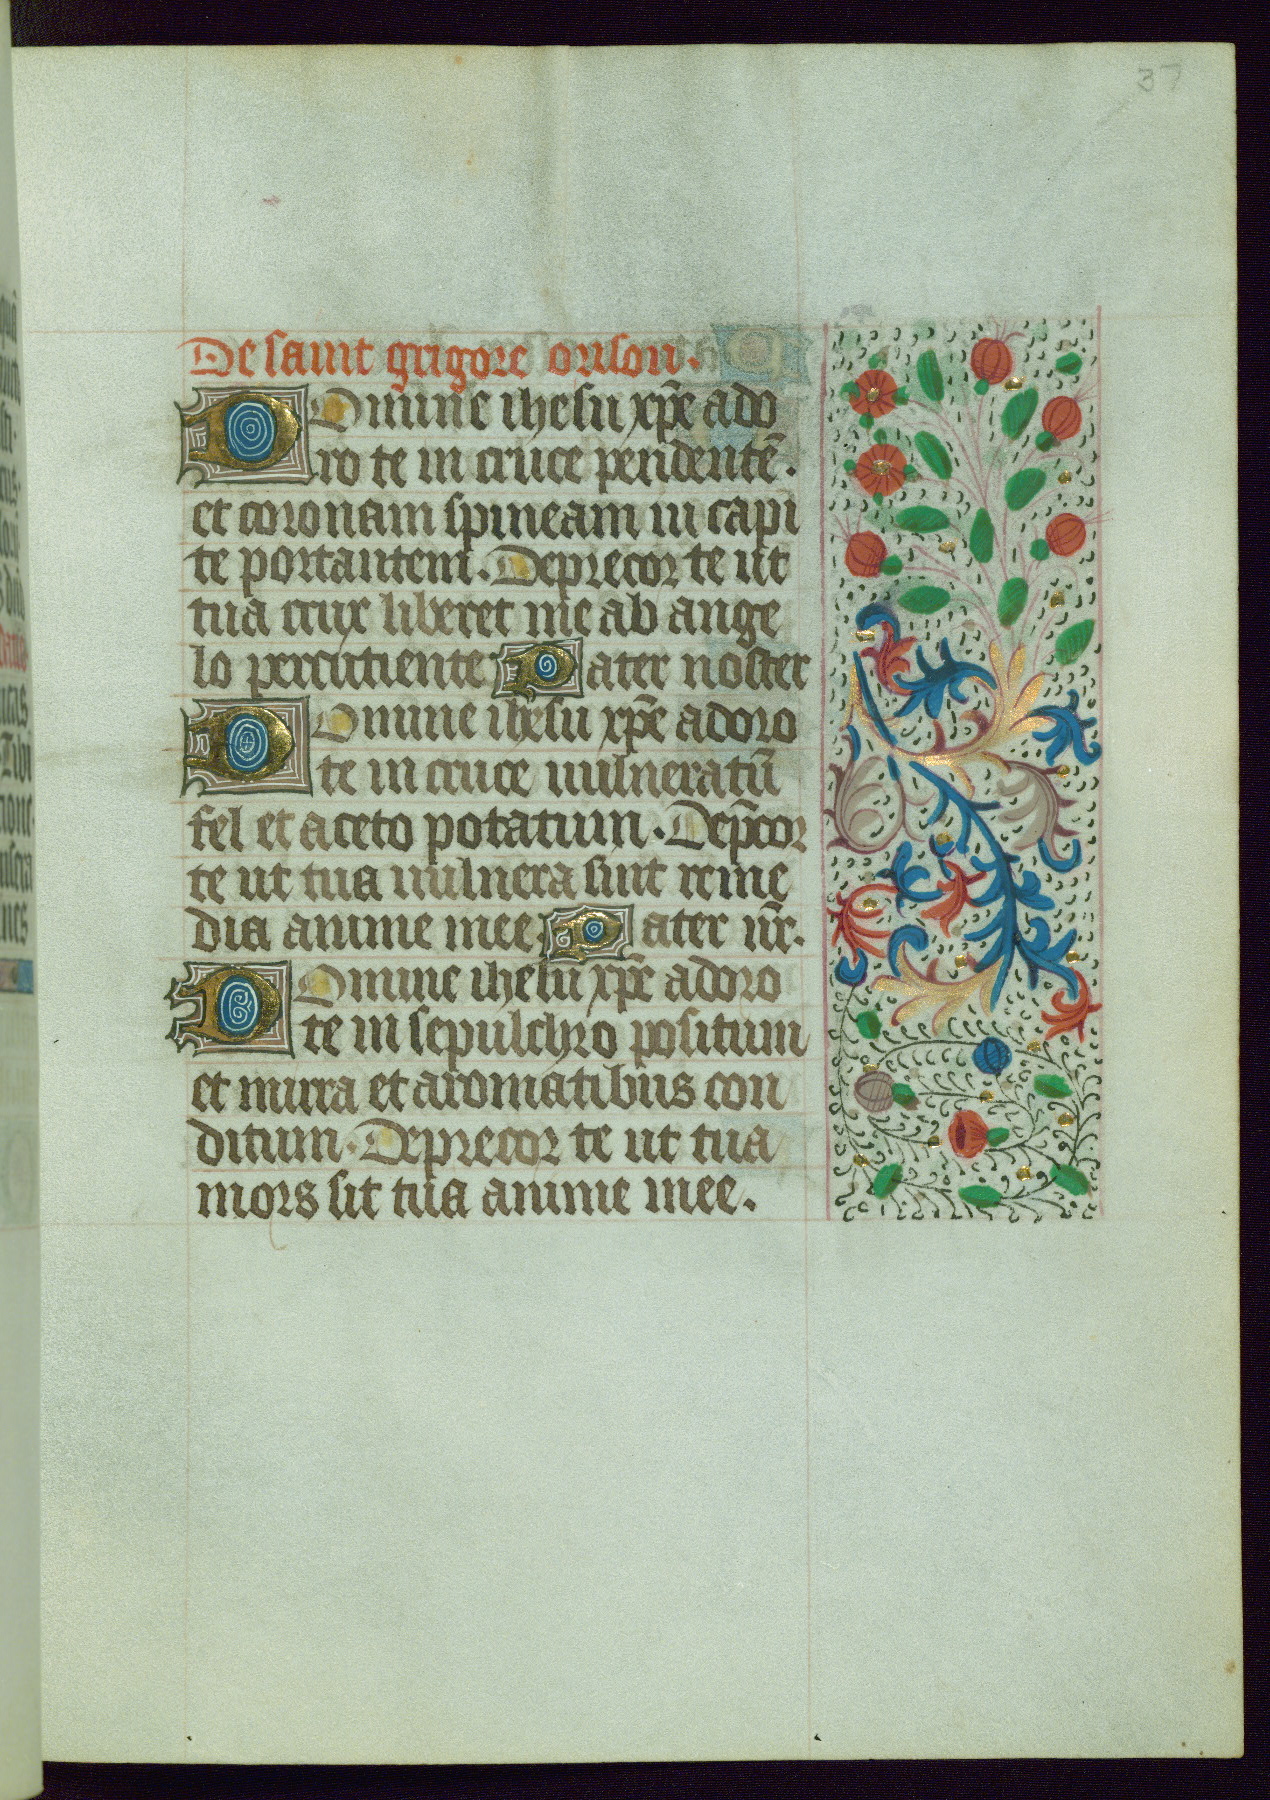 37
De saint grigore orison.
Domine ihesu xp̄e ado
ro te in cruce pendentē.
et coronam spineam in capi
te portantem. Deprecor te ut
tua crux liberet me ab ange
lo percutiente Pater noster
Domine ihesu xp̄e adoro
te in cruce uulneratū
fel et aceto potatum. Dep̄cor
te ut tua uulnera sint reme
dia anime mee. Pater nr̄.
Domine ihesu xp̄e adoro
te in sepulchro positum
et mirra et aromatibus con
ditum. Deprecor te ut tua
mors sit uita anime mee.